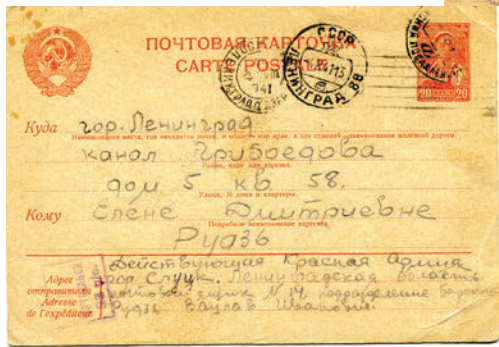 ПОЧТОВАЯ КАРТОЧКА
CARTE POSTALE
СССР
ЛЕНИНГРАД 88
20 20
Куда гор. Ленинград
Наименование места, где находится почта, и области или края, а для станций—наименование железной дороги
канал Грибоедова
Район, село или деревня
дом 5 кв 58.
Улица, № дома и квартиры
Кому Елене Дмитриевне
Подробное наименование адресата
Рудзь
Действующая Красная Армия
Адрес гор Слуцк. Ленинградская область
отправителя почтовый ящик N 14, подразделение
Adresse
de l'expéditeur Рудзь Вацлав Иванович.